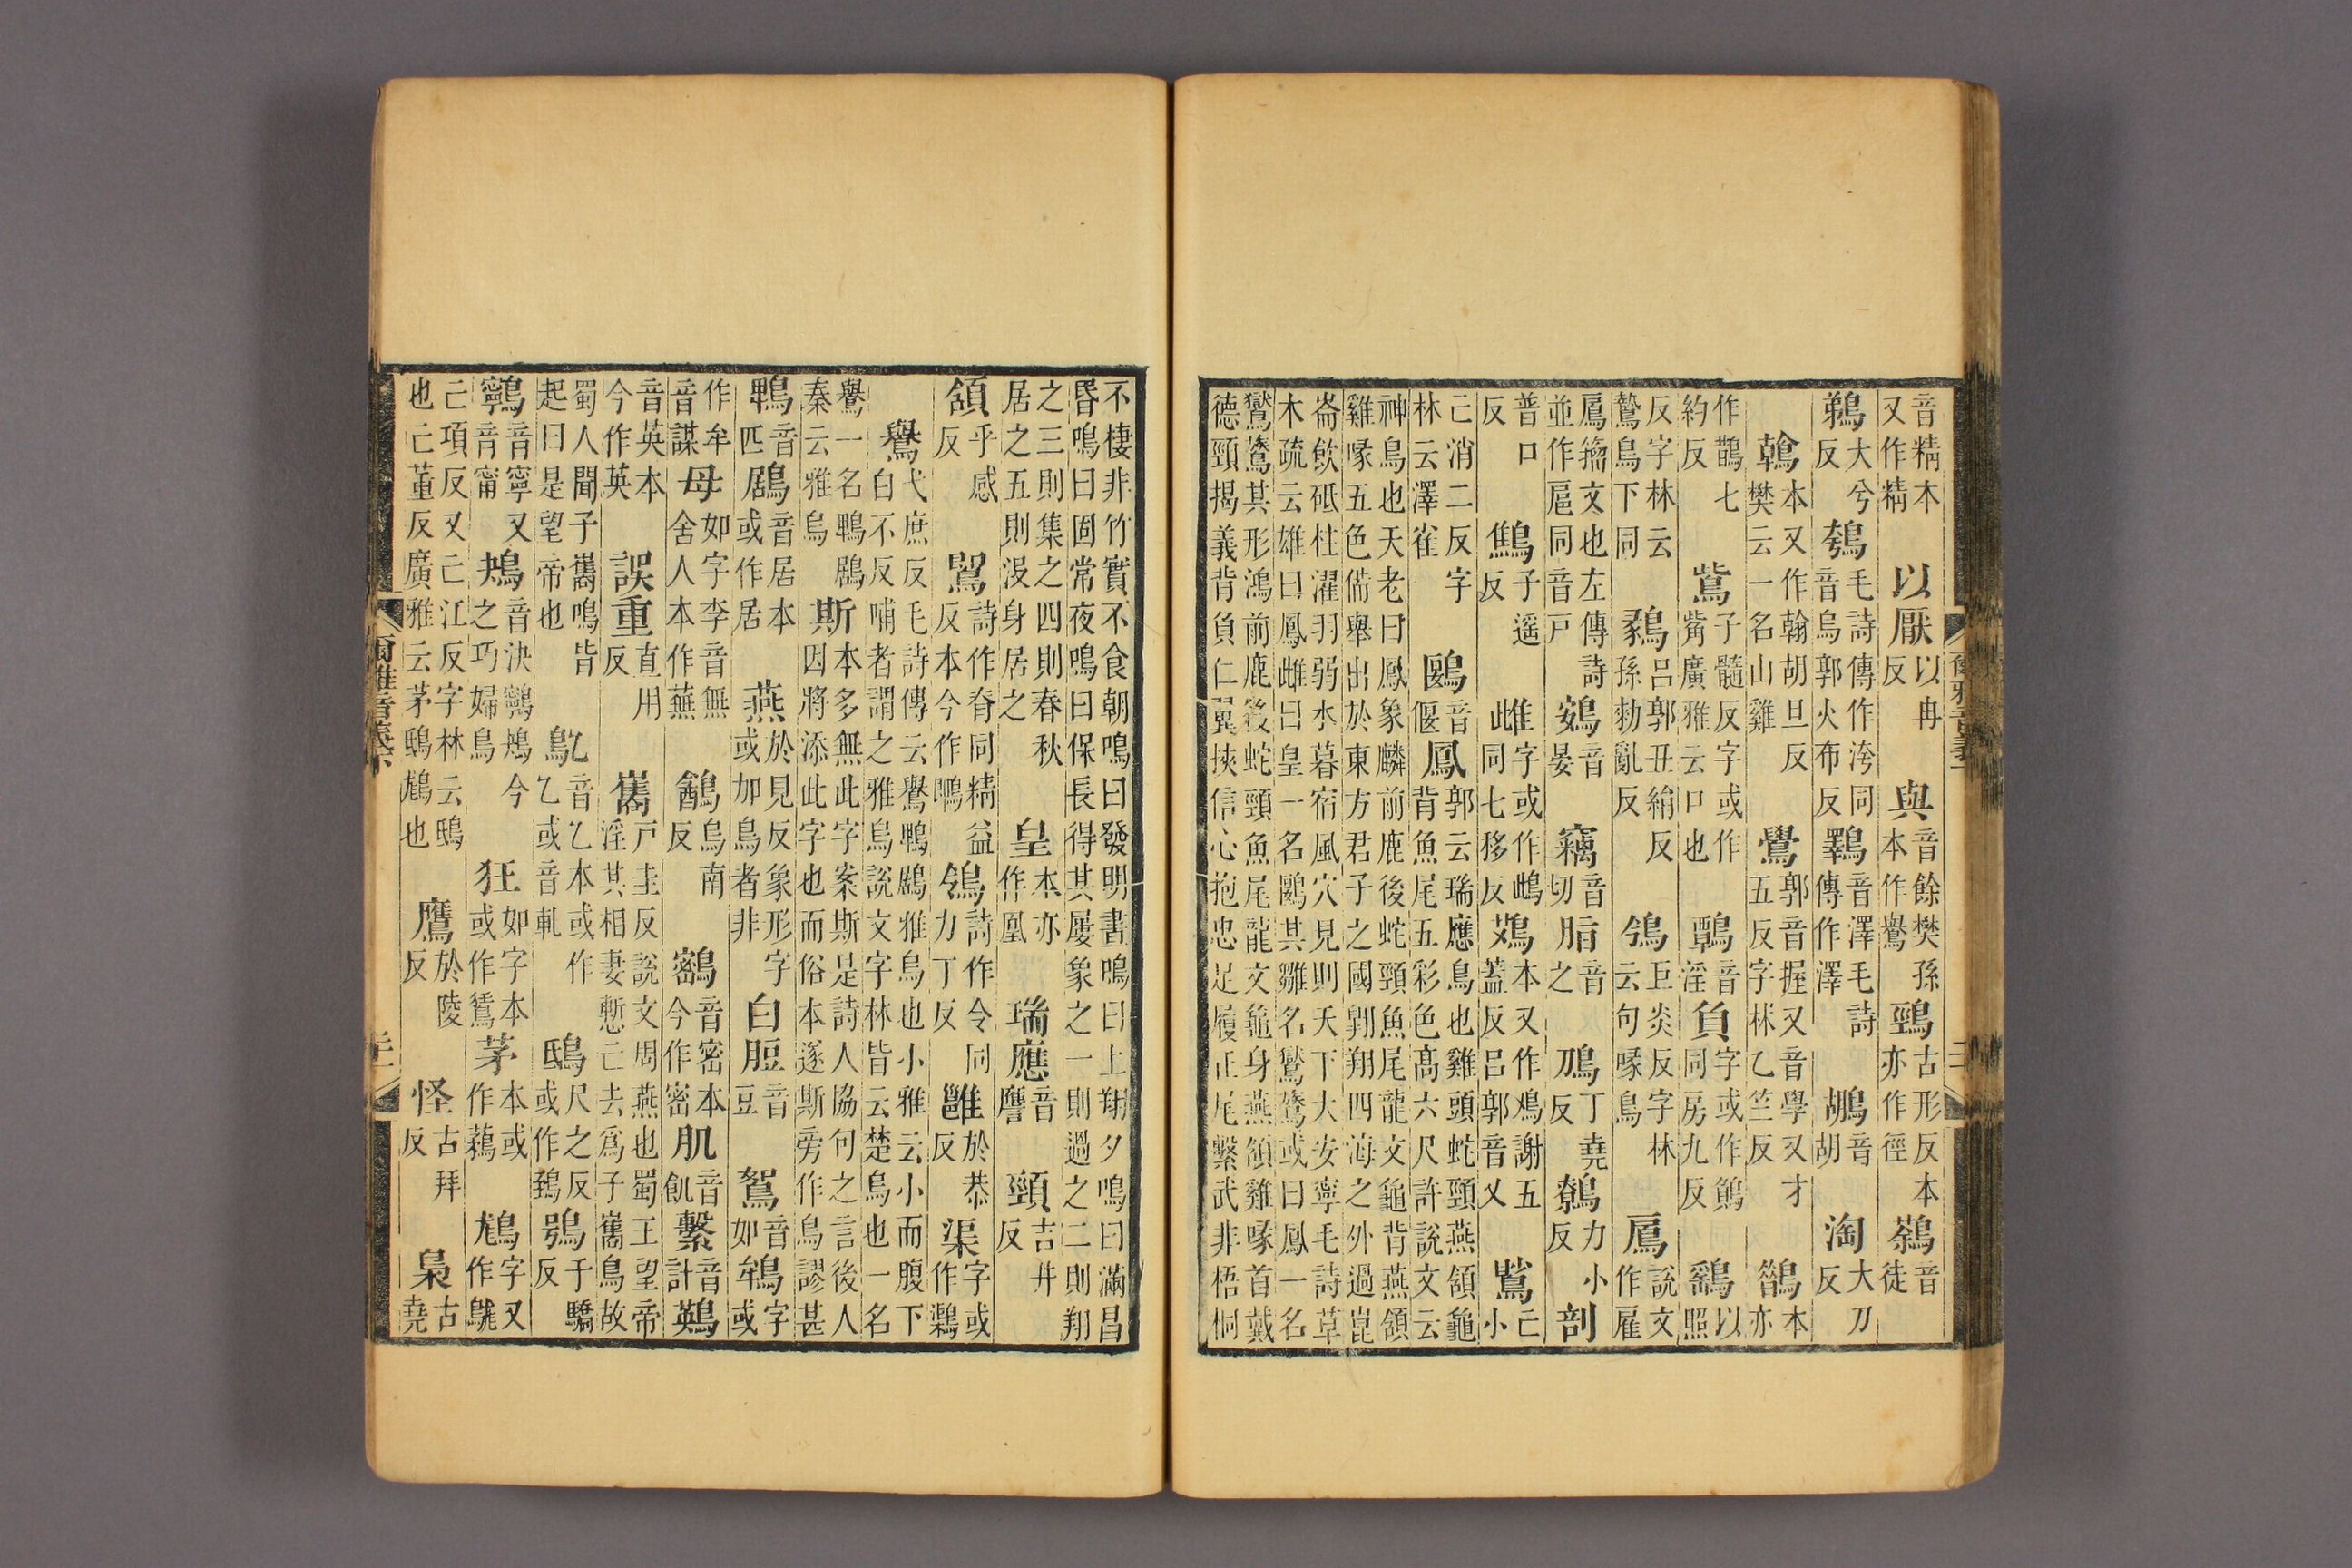 音精本又作精以厭以冉反與音餘樊孫本作鸒鵛古形反本亦作徑鷋音徒
鵜大兮反鴮毛詩傳作洿同音烏郭火布反鸅音澤毛詩傳作澤鶘音胡淘大刀反
鶾本又作翰胡旦反樊云一名山雞鷽郭音握又音學又才五反字林乙竺反本亦
作鵲七約反鴜子髓反字或作觜廣雅云口也鷣音淫負字或作同房九反鷂以照
反字林云鷙鳥下同鶨呂郭丑絹反孫勑亂反鳹巨炎反字林云句喙鳥鳸說文作雇
鳸籀文也左傳詩並作扈同音戶鴳音晏竊音切脂音之鳭丁堯反鷯力小反剖
普口反鷦子遥反雌字或作鴜同七移反鴱本又作鳽謝五蓋反呂郭音乂亡小
亡消二反字林云澤雀鶠音偃鳳郭云瑞應鳥也雞頭蛇頸燕頷龜背魚尾五彩色高六尺許說文云
神鳥也天老曰鳳象麟前鹿後蛇頸魚尾龍文龜背燕頷雞喙五色備舉出於東方君子之國翺翔四海之外過崑
崙飲砥柱濯羽弱水暮宿風穴見則天下大安寧毛詩草木疏云雄曰鳳雌曰皇一名鶠其雛名鸑鷟或曰鳳一名
鸑鷟其形鴻前鹿後蛇頸魚尾龍文龜身燕頷雞喙首戴德頸揭義背負仁翼挾信心抱忠足履正尾繫武非梧桐
不棲非竹實不食朝鳴曰發明晝鳴曰上翔夕鳴曰滿昌昏鳴曰固常夜鳴曰保長得其屢象之一則過之二則翔
之三則集之四則春秋居之五則沒身居之皇本亦作凰瑞應音譍頸吉井反
頷乎感反詩作脊同精益反本今作鴒詩作令同力丁反雝於恭反渠字或作鸈
鸒弋庶反毛詩傳云鸒鵯鶋雅烏也小雅云小而腹下白不反哺者謂之雅烏說文字林皆云楚烏也一名
鸒一名鵯鶋秦云雅烏斯本多無此字案斯是詩人協句之言後人因將添此字也而俗本遂斯旁作鳥謬甚
鵯音匹鶋音居本或作居燕於見反象形字或加鳥者非白脰音豆鴽音如鴾字或
作牟音謀母如字李音無舍人本作蕪鶕烏南反音密本今作密肌音飢繫音計鶧
音英本今作英誤重直用反巂戶圭反說文周燕也蜀王望帝淫其相妻慙亡去爲子巂鳥故
蜀人聞子巂鳴皆起曰是望帝也鳦音乙本或作乙或音軋鴟尺之反或作鵄鴞于驕反
鸋音寧又音甯鴂音決鸋鴂今之巧婦鳥狂如字本或作鵟茅本或作鶜字又作
亡項反又亡江反字林云鴟也亡董反廣雅云茅鴟也鷹於陵反怪古拜反梟古堯
爾雅音義下